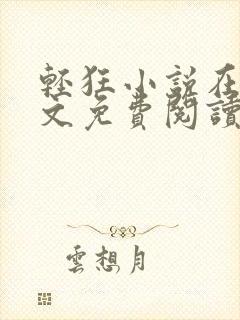 輕狂小說在
文免費閱讀
雲想月